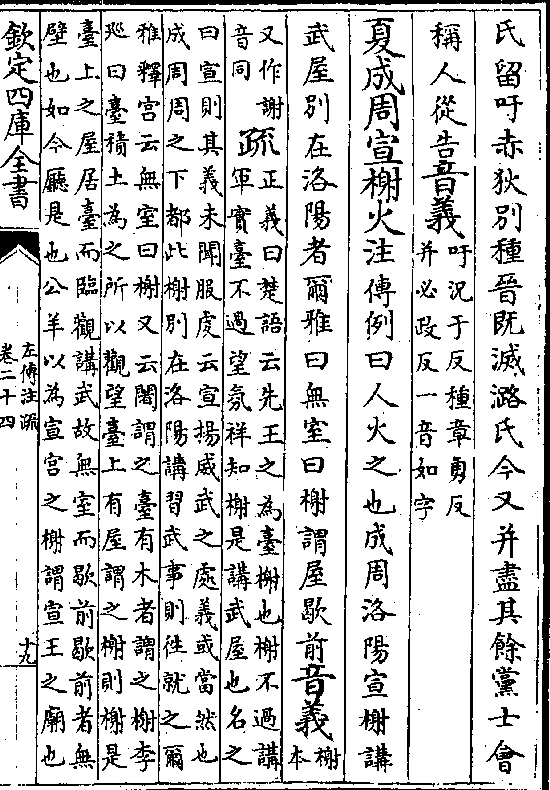 氏留吁赤狄别種晉既滅潞氏今又并盡其餘黨士㑹
稱人從告音義吁況于反種章勇反
并必政反一音如字
夏成周宣榭火注傳例曰人火之也成周洛陽宣榭講
武屋別在洛陽者爾雅曰無室曰榭謂屋歇前音義榭
本
又作謝
音同疏正義曰楚語云先王之為臺榭也榭不過講
軍實臺不過望氛祥知榭是講武屋也名之
曰宣則其義未聞服虔云宣揚威武之處義或當然也
成周周之下都此榭別在洛陽講習武事則徃就之爾
雅釋宮云無室曰榭又云闍謂之臺有木者謂之榭李
廵曰臺積土為之所以觀望臺上有屋謂之榭則榭是
臺上之屋居臺而臨觀講武故無室而歇前歇前者無
壁也如今廳是也公羊以為宣宮之榭謂宣王之廟也
欽定四庫全書
左傳注疏
卷二十四
十九